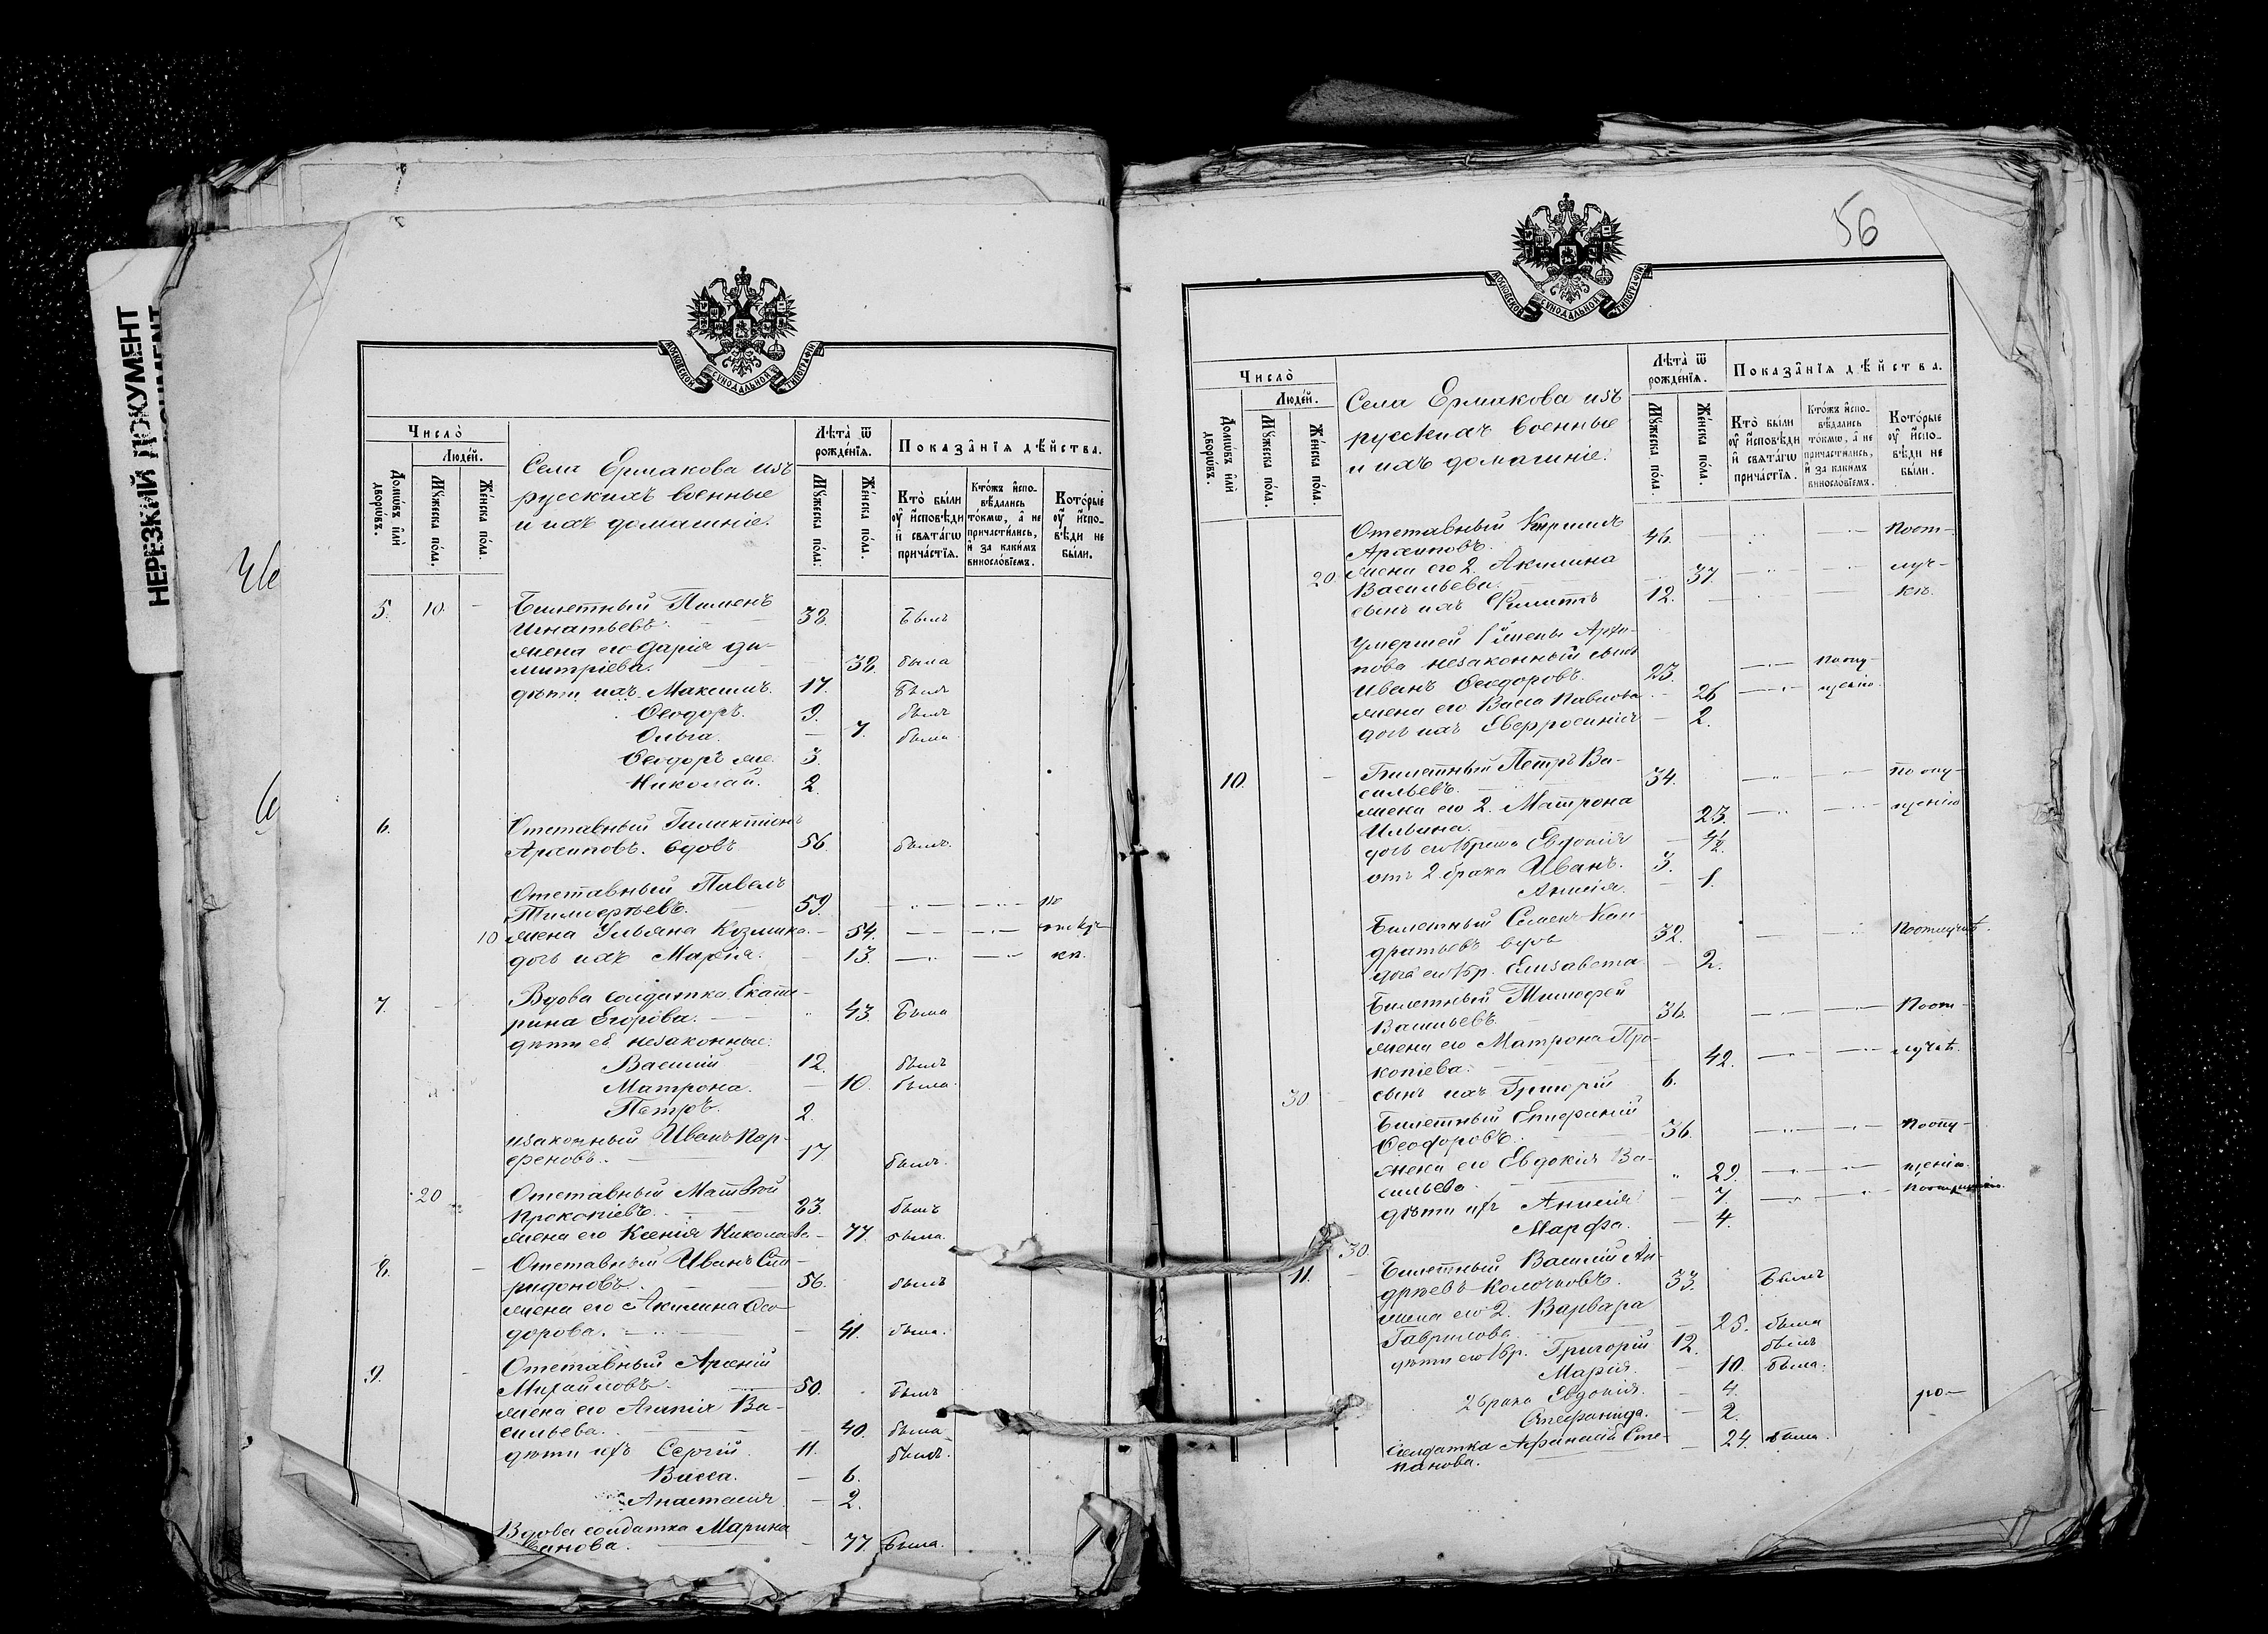 НЕРЕЗКИЙ ДОКУМЕНТ
МОСКОВСКОЙ СѴНОДАЛЬНОЙ ТИПОГРАФІИ
Число̀
Людей.
Домѡвъ и҆лѝ дворѡвъ.
Мꙋжеска пола.
Женска пола.
Села Ермакова изъ
русскихъ военные
и ихъ домашніе.
Лѣта̀ ѿ рожденїѧ.
Мꙋжеска пола.
Женска пола.
Показанїѧ дѣйства.
Кто̀ были оу҆ и҆сповѣди и҆ свѧтагѡ причастїѧ.
Ктожъ и҆сповѣдались токмѡ, а҆ не причастились, и҆ за какимъ винословїемъ.
Которые оу҆ и҆сповѣди не были.
5. 10. Билетный Пименъ
Игнатьевъ. 38. Былъ
жена его Дарія Ди-
митріева. 38. была
дѣти ихъ Максимъ. 17. Былъ
Ѳеодоръ. 9. былъ
Ольга. 7. была
Ѳеодоръ 3.
Николай. 2.
6. Отставный Галактіонъ
Архиповъ. вдовъ 56. былъ.
Отставный Павелъ
Тимоѳеевъ. 59. по
10 жена Ульяна Козмина. 54.
дочь ихъ Марія. 13.
7. Вдова солдатка Екате-
рина Егорова. 43. Была
дѣти ея незаконные:
Василій 12. былъ
Матрона. 10. была.
Петръ. 2.
незаконный Иванъ Пар-
ѳеновъ. 17 былъ.
20 Отставный Матвѣй
Прокопіевъ. 83. былъ
жена его Ксенія Николаева 77. была.
8. Отставный Иванъ Спи-
ридоновъ. 56. былъ
жена его Акилина Ѳео-
дорова. 41. была.
9. Отставный Арсеній
Михайловъ. 50. былъ
жена его Агапія Ва-
сильева. 40. была
дѣти ихъ Сергій 11. былъ.
Васса. 6.
Анастасія 2.
Вдова солдатка Марина
77. Была.
56
МОСКОВСКОЙ СѴНОДАЛЬНОЙ ТИПОГРАФІИ
Число̀
Людей.
Домѡвъ и҆лѝ дворѡвъ.
Мꙋжеска пола.
Женска пола.
Села Ермакова изъ
русскихъ военные
и ихъ домашніе.
Лѣта̀ ѿ рожденїѧ.
Мꙋжеска пола.
Женска пола.
Показанїѧ дѣйства.
Кто̀ были оу҆ и҆сповѣди и҆ свѧтагѡ причастїѧ.
Ктожъ и҆сповѣдались токмѡ, а҆ не причастились, и҆ за какимъ винословїемъ.
Которые оу҆ и҆сповѣди не были.
Отставный Кириллъ
Архиповъ. 46. По от-
20 жена его 2. Акилина
Васильева. 37. луч-
сынъ ихъ Филиппъ 12. кѣ.
Умершей
Архи-
пова незаконный сынъ
Иванъ Ѳеодоровъ. 23. по опу-
жена его Васса Павлова 26 щенію.
дочь ихъ Евфросинія 2.
10. Билетный Петръ Ва-
сильевъ. 34. по опу-
жена его 2. Матрона
Ильина. 23. щенію
дочь его 1 брака Евдокія
отъ 2 брака Иванъ. 3.
Анисія. 1.
Билетный Семенъ Кон-
дратьевъ вдов 32. По отлучкѣ.
дочь его 1 бр. Елизавета 2.
Билетный Тимоѳей
Васильевъ. 36. По от-
жена его Матрона Про-
копіева. 42. лучкѣ.
30 сынъ ихъ Григорій 6.
Билетный Епифаній
Ѳеодоровъ. 36. По опу-
жена его Евдокія Ва-
сильева 29. щенію.
дѣти ихъ Анисія 7
Марфа. 4.
30.
11. Билетный Василій Ан-
дреевъ Колочковъ. 33. Былъ
жена его 2. Варвара
Гаврилова. 25. была
дѣти его 1 бр. Григорій 12. былъ
Марія 10. была.
2 брака Евдокія. 4.
Стефанида. 2.
Солдатка Сте-
панова. 24. была.